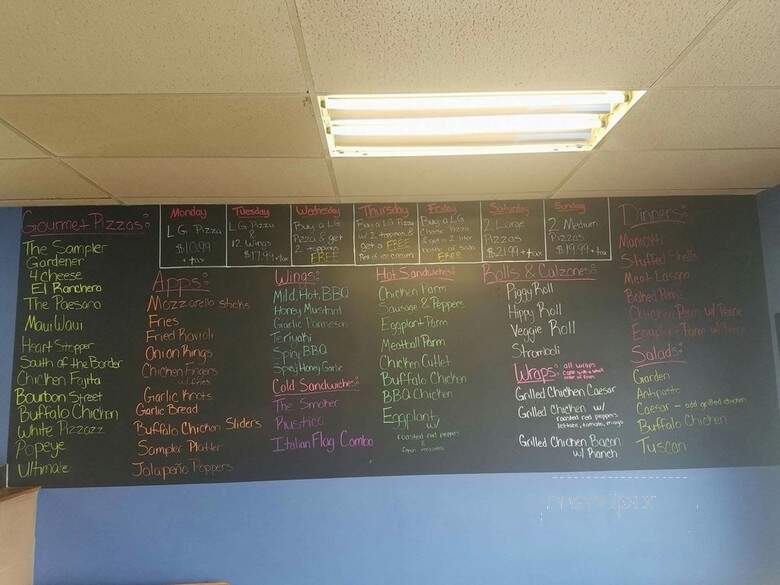 Gourmet Pizzas:
The Sampler
Gardener
4 Cheese
El Ranchero
The Paesano
Maui Waui
Heart Stopper
South of the Border
Chicken Fajita
Bourbon Street
Buffalo Chicken
White Pizzazz
Popeye
Ultimate
Monday
LG Pizza
$10.99
+ tax
Tuesday
LG Pizza
&
12 Wings
$17.99 + tax
Wednesday
Buy a LG
Pizza & get
2 toppings
FREE
Thursday
Buy a LG Pizza
w/ 2 toppings &
Get a FREE
Pint of ice cream
Friday
Buy a LG
Cheese Pizza
& get a 2 liter
bottle of soda
FREE
Saturday
2 Large
Pizzas
$21.99 + tax
Sunday
2 Medium
Pizzas
$19.99 + tax
Apps:
Mozzarella sticks
Fries
Fried Ravioli
Onion Rings
Chicken Fingers
w/ fries
Garlic Knots
Garlic Bread
Buffalo Chicken Sliders
Sampler Platter
Jalapeño Poppers
Wings:
Mild, Hot, BBQ
Honey Mustard
Garlic Parmesan
Teriyaki
Spicy BBQ
Spicy Honey Garlic
Cold Sandwiches:
The Smoker
Rustico
Italian Flag Combo
Hot Sandwiches:
Chicken Parm
Sausage & Peppers
Eggplant Parm
Meatball Parm
Chicken Cutlet
Buffalo Chicken
BBQ Chicken
Eggplant
w/
roasted red peppers
&
Rolls & Calzones:
Piggy Roll
Hippy Roll
Veggie Roll
Stromboli
Wraps: all wraps
come with a small
Grilled Chicken Caesar
Grilled Chicken w/
roasted red peppers
lettuce, tomato, mayo
Grilled Chicken Bacon
w/ Ranch
Dinners:
Manicotti
Stuffed Shells
Meat Lasana
Baked Penne
Chicken Parm w/ Penne
Eggplant Parm w/ Penne
Salads:
Garden
Antipasto
Caesar - add grilled chicken
Buffalo Chicken
Tuscan